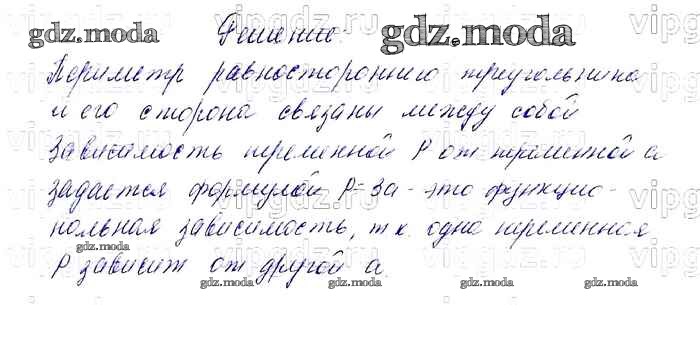 Решение.
Периметр равностороннего треугольника
и его сторона связаны между собой
Зависимость переменной P от переменной a
задается формулой P=3a - это функцио-
нальная зависимость, т.к. одна переменная
P зависит от другой a.
gdz.moda
gdz.moda
gdz.moda
gdz.moda
gdz.moda
gdz.moda
gdz.moda
vipgdz.ru
vipgdz.ru
vipgdz.ru